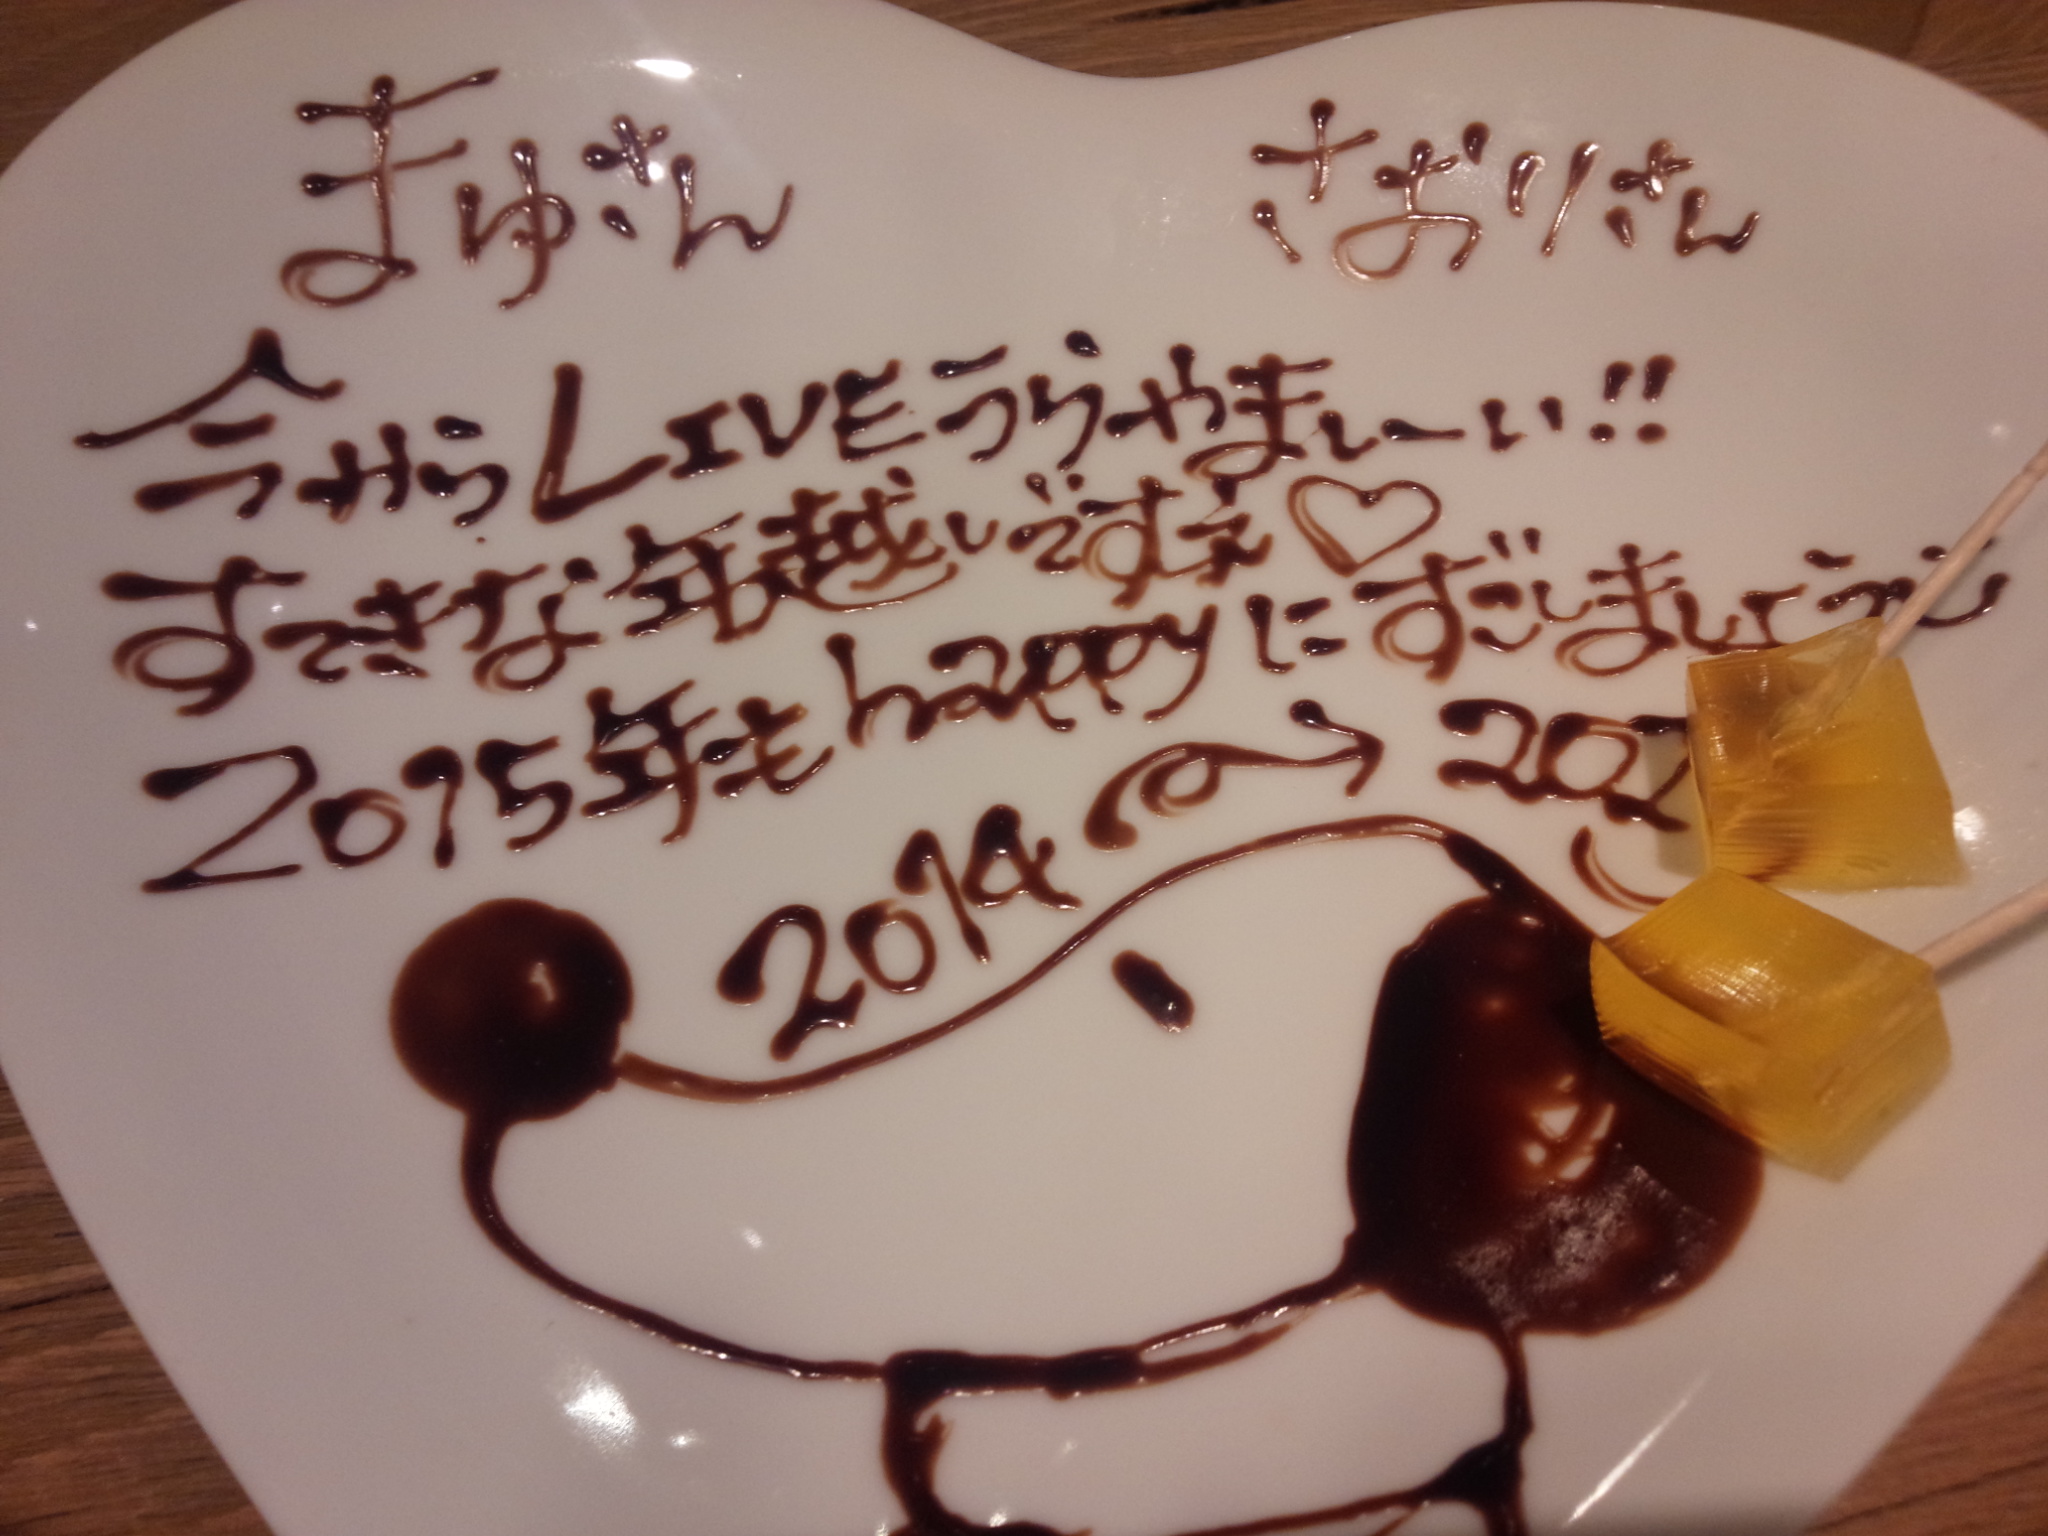 まゆさん
さおりさん
今からLIVEうらやまし〜い!!
すてきな年越しですネ♡
2015年もhappyにすごしましょう
2014 → 201